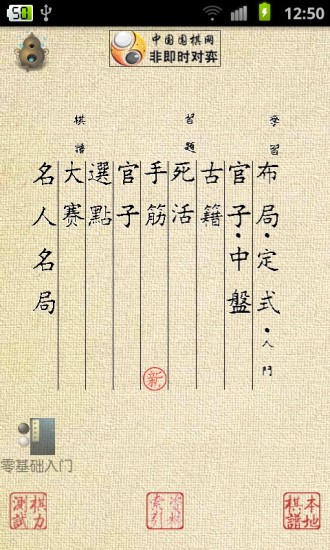 50
12:50
中国围棋网
非即时对弈
學習
布局·定式·入門
官子·中盤
古籍
習題
死活
手筋
官子
選點
棋譜
大赛
名人名局
新
零基础入门
棋力
測試
資料
索引
本地
棋譜